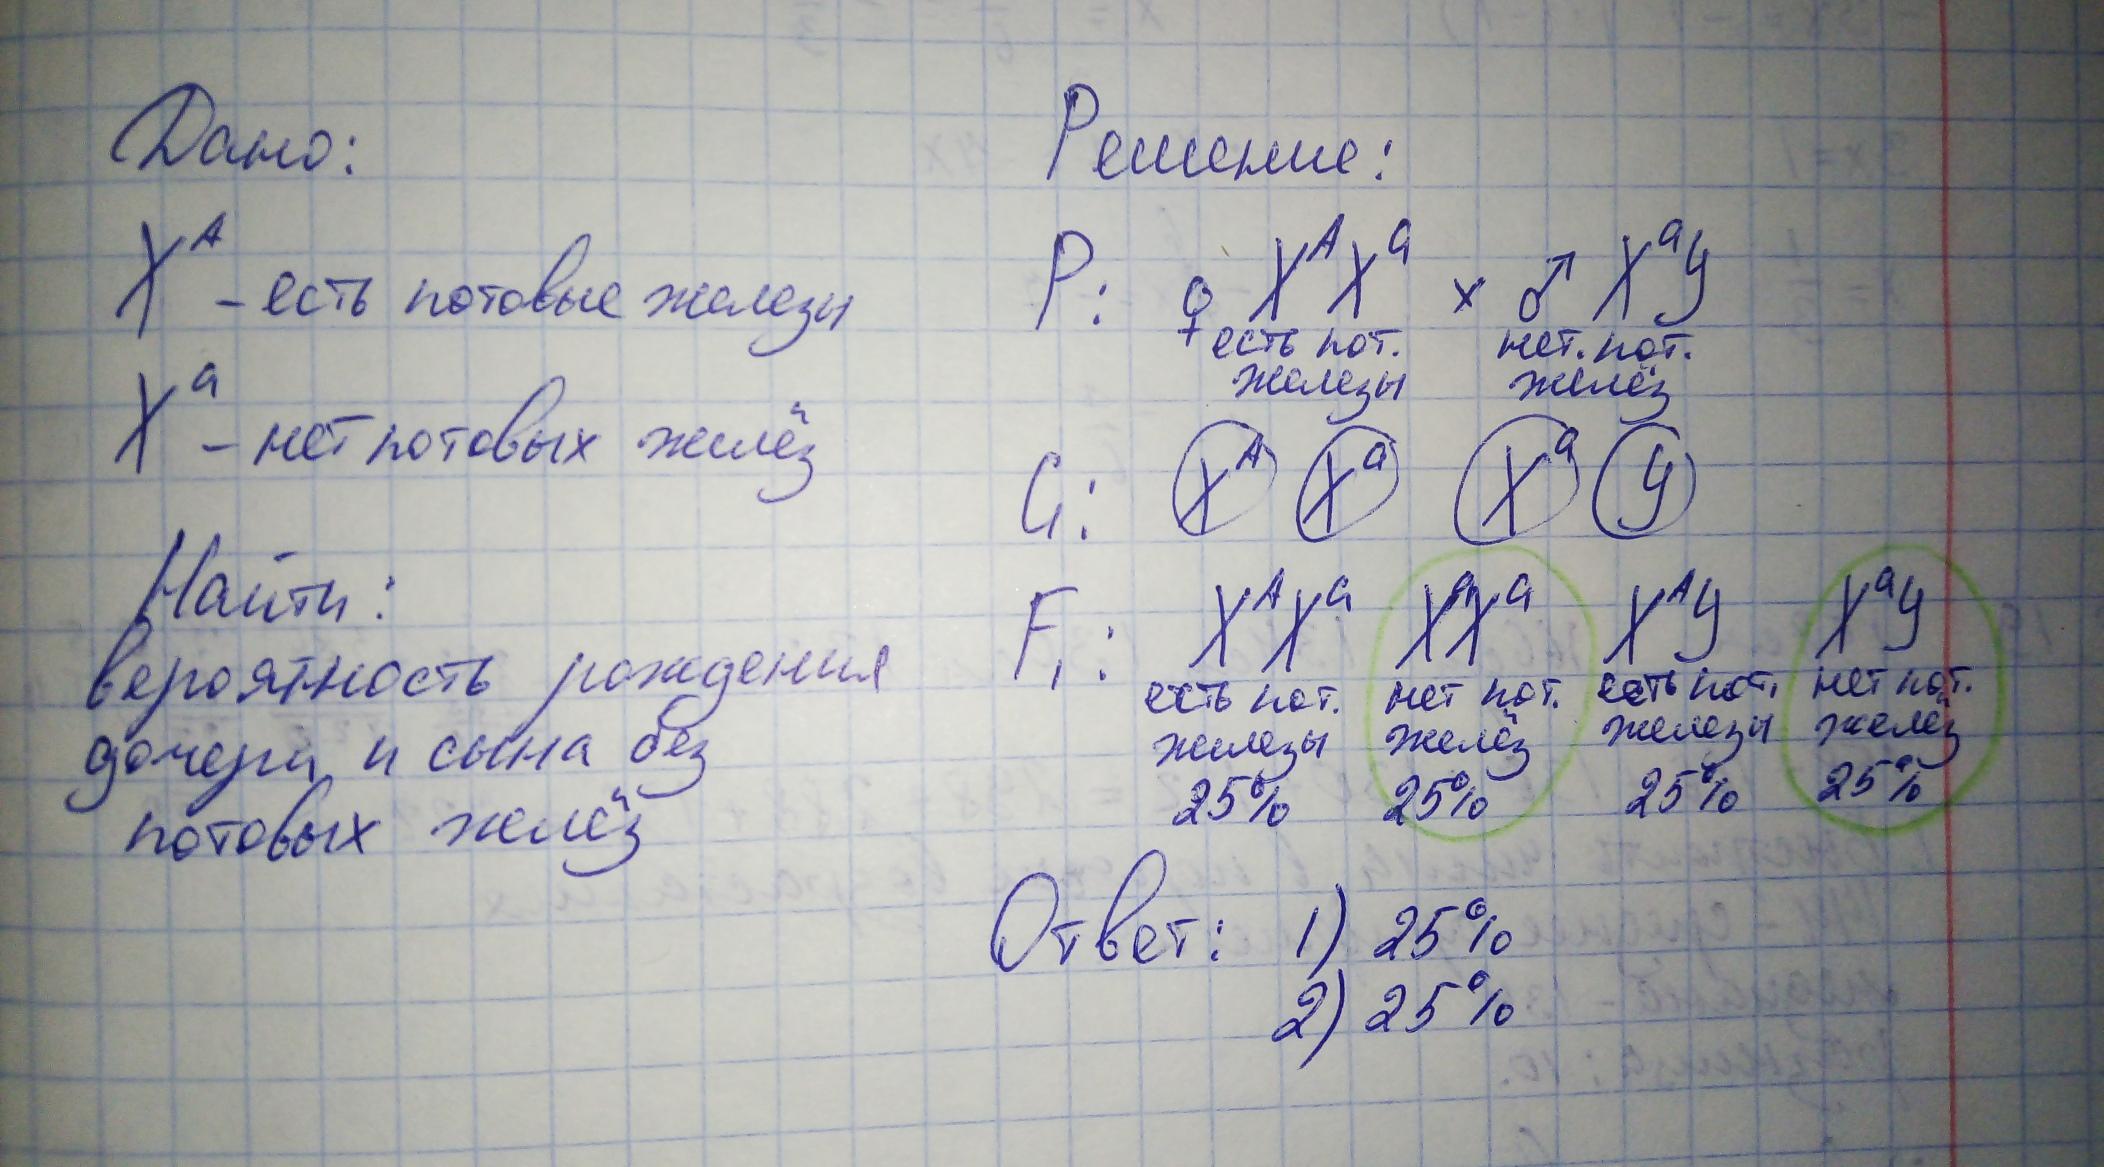 Дано:
Xᴬ – есть потовые железы
Xᵃ – нет потовых желёз
Найти:
вероятность рождения
дочери и сына без
потовых желёз
Решение:
P: ♀ XᴬXᵃ x ♂ XᵃY
есть пот. нет. пот.
железы желёз
G: Xᴬ Xᵃ Xᵃ Y
F₁: XᴬXᵃ XᵃXᵃ XᴬY XᵃY
есть пот. нет пот. есть пот. нет пот.
железы желёз железы желёз
25% 25% 25% 25%
Ответ: 1) 25%
2) 25%